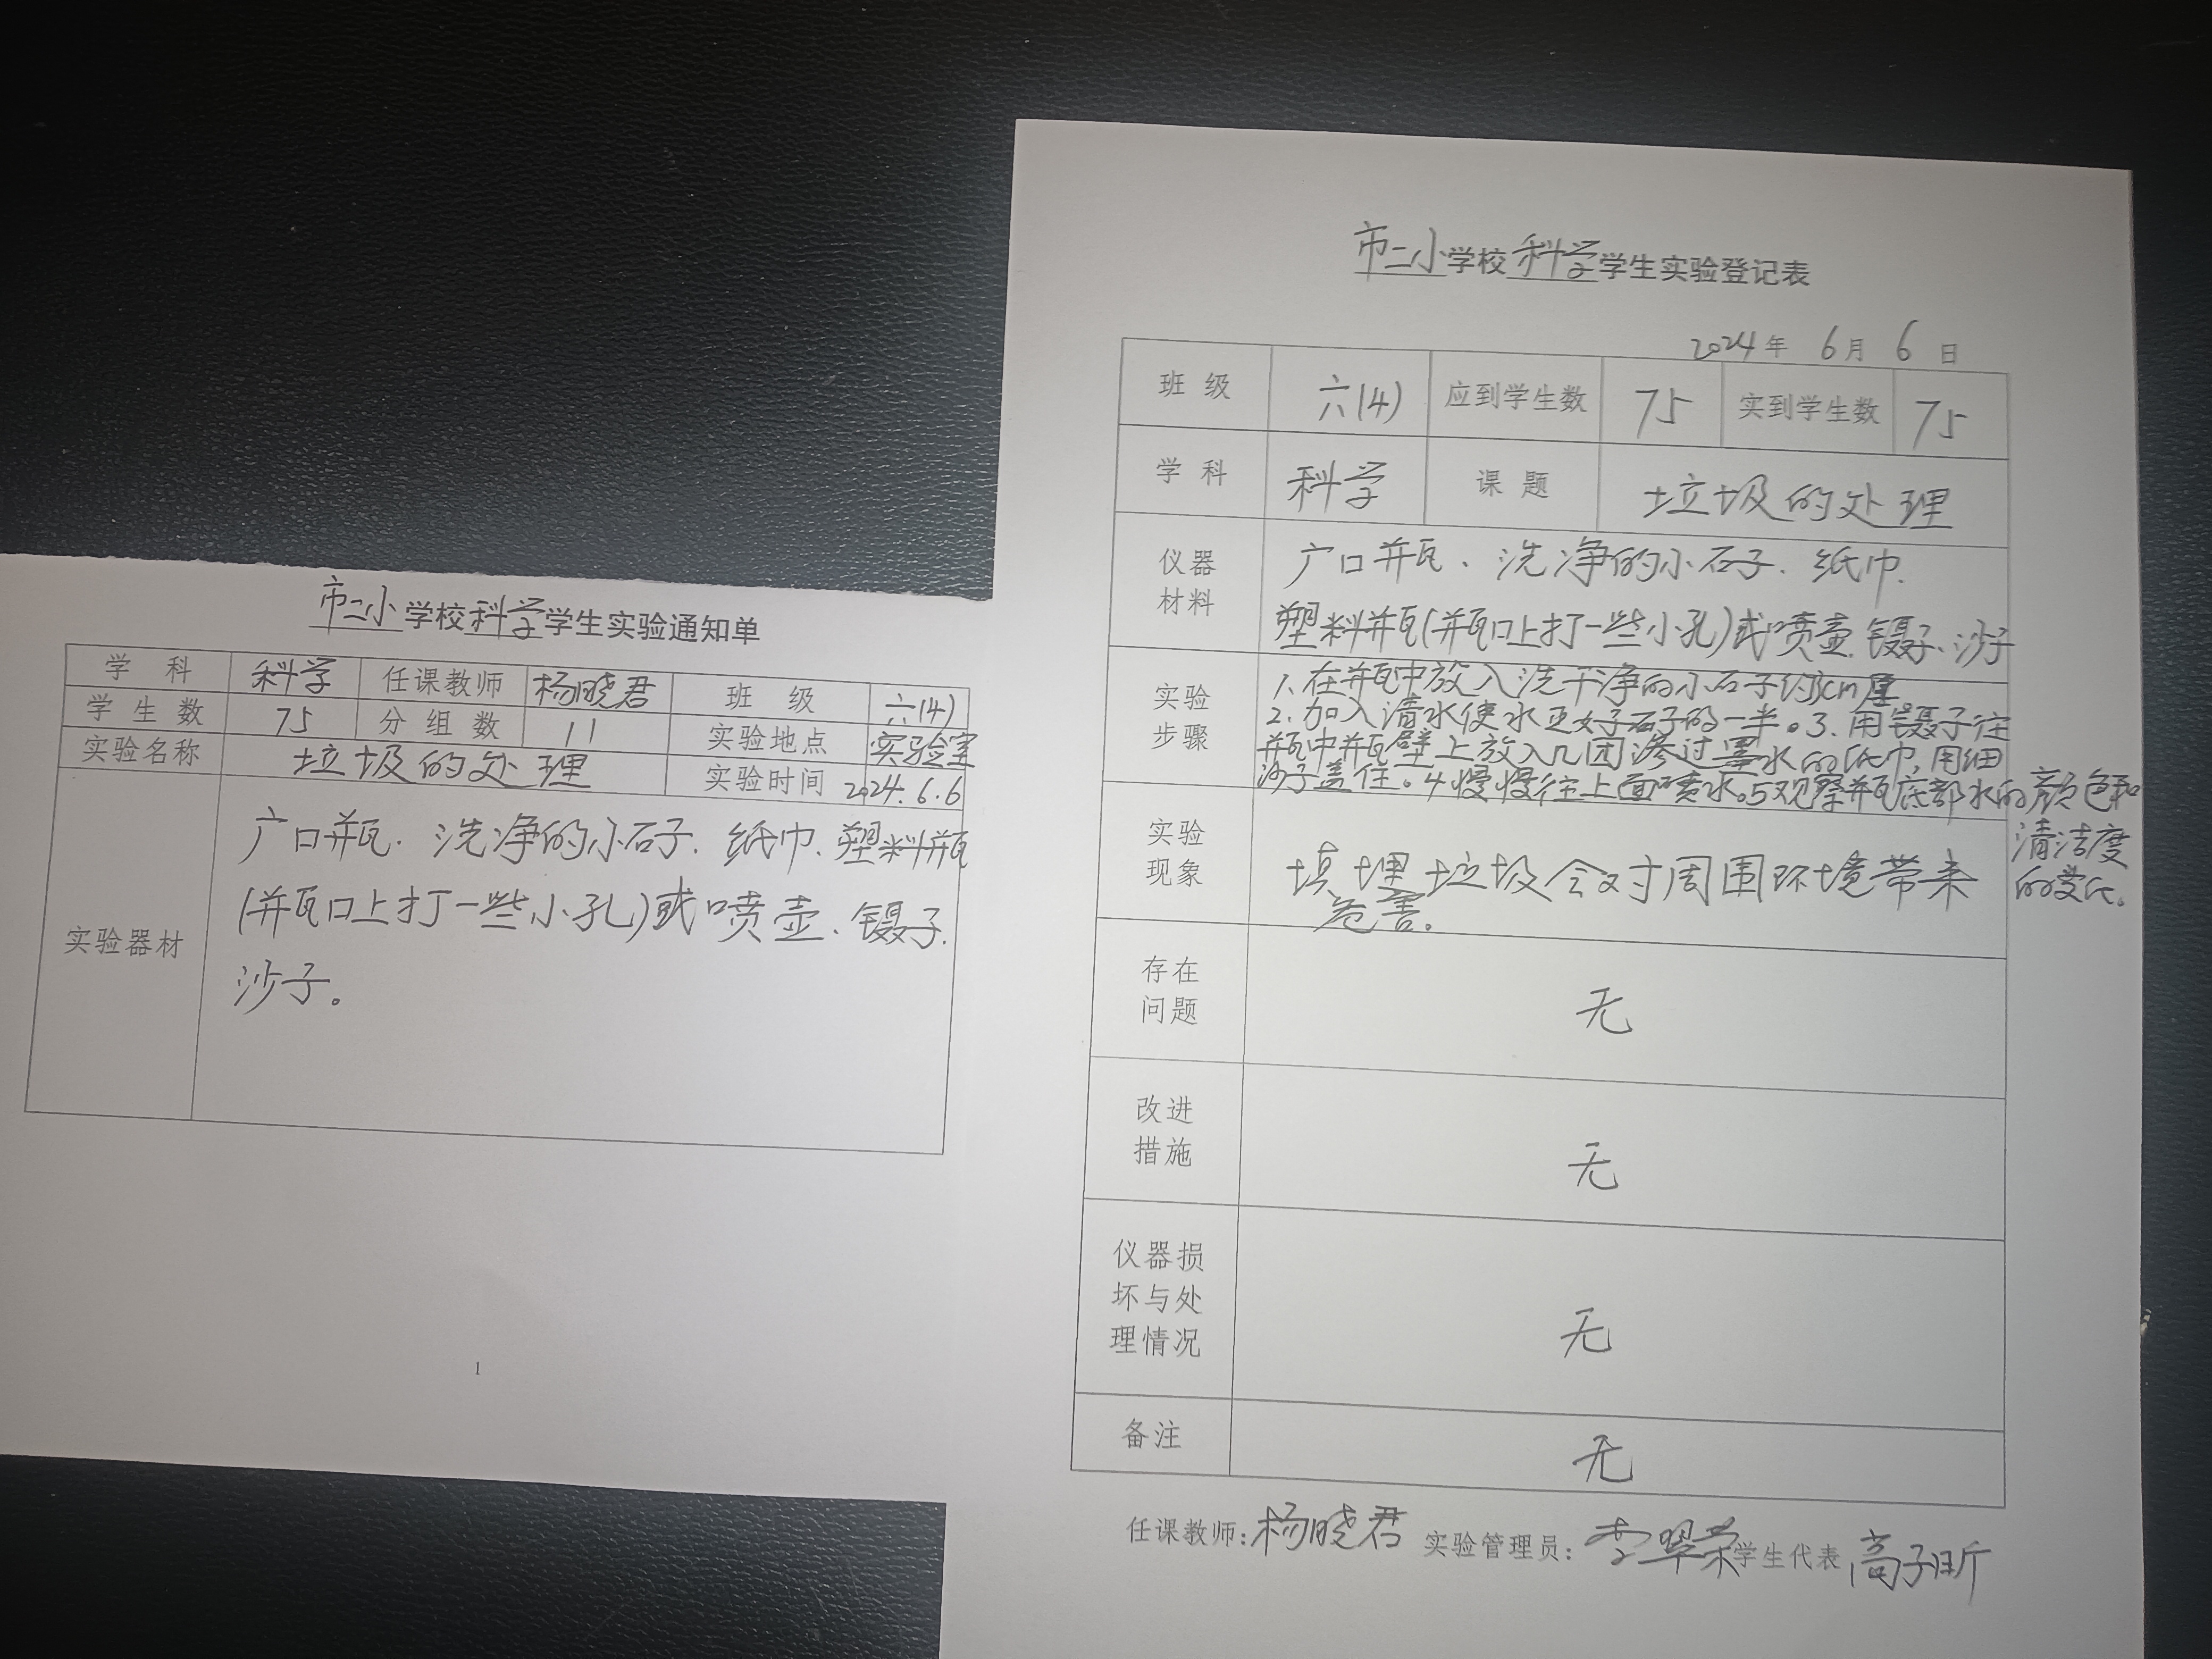 市二小学校科学学生实验通知单
学 科 科学 任课教师 杨晓君 班 级 六(4)
学 生 数 75 分 组 数 11 实验地点 实验室
实验名称 垃圾的处理 实验时间 2024.6.6
实验器材
广口瓶、洗净的小石子、纸巾、塑料瓶
(瓶口上打一些小孔)或喷壶、镊子、
沙子。
1
市二小学校科学学生实验登记表
2024年 6月 6日
班 级 六(4) 应到学生数 75 实到学生数 75
学 科 科学 课 题 垃圾的处理
仪器
材料
广口瓶、洗净的小石子、纸巾、
塑料瓶(瓶口上打一些小孔)或喷壶、镊子、沙子
实验
步骤
1、在瓶中放入洗干净的小石子约3cm厚
2、加入清水使水正好于石子的一半。3、用镊子往
瓶中瓶壁上放入几团渗过墨水的纸巾,用细
沙子盖住。4慢慢往上面喷水。5观察瓶底部水的颜色和
清洁度
的变化。
实验
现象
填埋垃圾会对周围环境带来
危害。
存在
问题
无
改进
措施
无
仪器损
坏与处
理情况
无
备注
无
任课教师:杨晓君 实验管理员:李翠荣 学生代表 高子昕